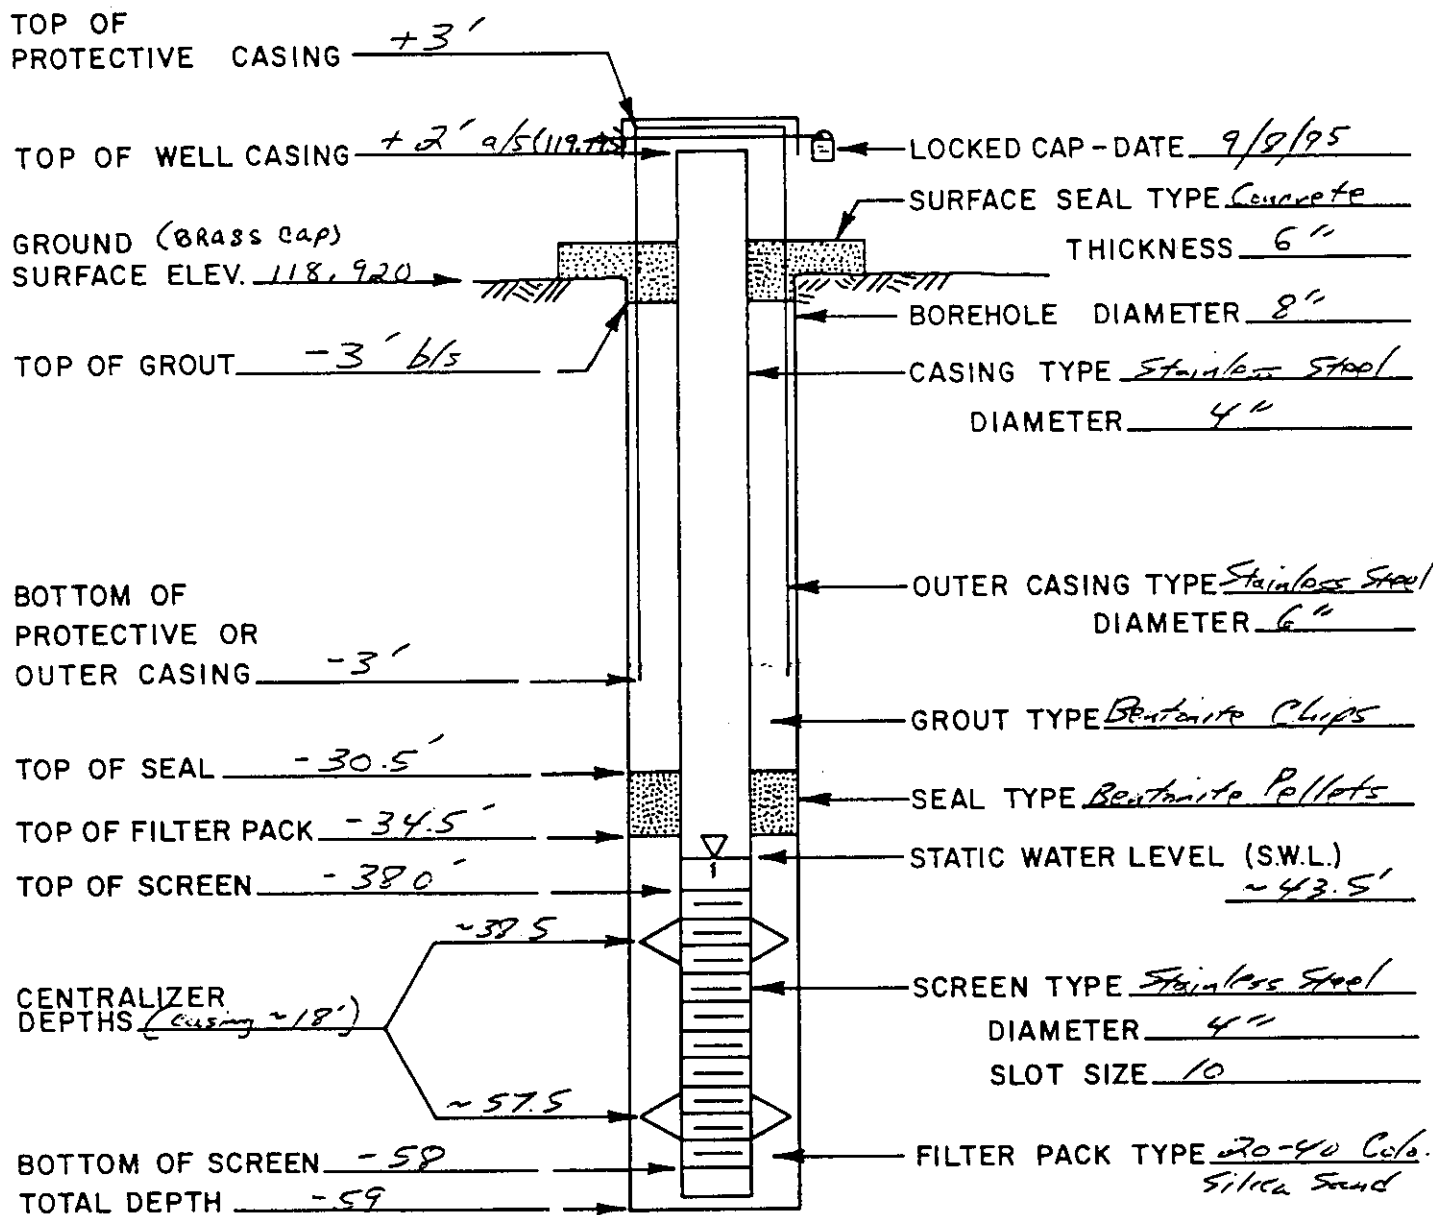 TOP OF
PROTECTIVE CASING +3'
TOP OF WELL CASING +2' a/s (119.795)
GROUND (BRASS CAP)
SURFACE ELEV. 118.920
TOP OF GROUT -3' b/s
BOTTOM OF
PROTECTIVE OR
OUTER CASING -3'
TOP OF SEAL -30.5'
TOP OF FILTER PACK -34.5'
TOP OF SCREEN -38.0'
~38.5
CENTRALIZER
DEPTHS (casing ~18')
~57.5
BOTTOM OF SCREEN -58
TOTAL DEPTH -59
LOCKED CAP-DATE 9/8/95
SURFACE SEAL TYPE Concrete
THICKNESS 6"
BOREHOLE DIAMETER 8"
CASING TYPE Stainless Steel
DIAMETER 4"
OUTER CASING TYPE Stainless Steel
DIAMETER 6"
GROUT TYPE Bentonite Chips
SEAL TYPE Bentonite Pellets
STATIC WATER LEVEL (S.W.L.)
~43.5'
SCREEN TYPE Stainless Steel
DIAMETER 4"
SLOT SIZE 10
FILTER PACK TYPE 20-40 Colo.
Silica Sand